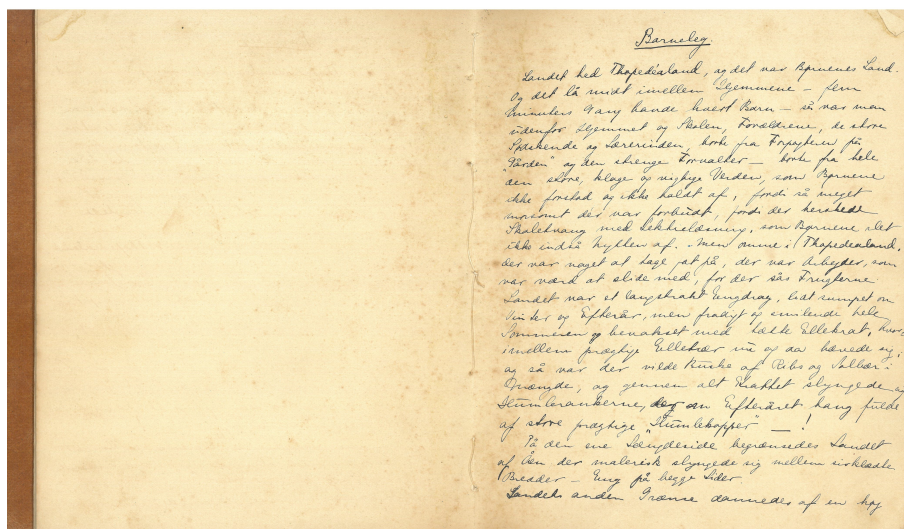 Barneleg.
Landet hed Thopedéaland, og det var Børnenes Land.
Og det lå midt imellem Hjemmene – fem
minutters Gang havde hvert Barn – så var man
udenfor Hjemmet og Skolen, Forældrene, de store
Søskende og Lærerinden, borte fra Forpagteren på
"Gården" og den strenge Forvalter – borte fra hele
den store, kloge og vigtige Verden, som Børnene
ikke forstod og ikke holdt af, fordi så meget
morsomt der var forbudt, fordi der herskede
Skoletvang med Lektielæsning, som Børnene slet
ikke indså Nytten af. Men omme i Thopedéaland,
der var noget at tage fat på, der var Arbejder, som
var værd at slide med, for der sås Frugterne
Landet var et langstrakt Engdrag, lidt sumpet om
Vinter og Efterår, men frodigt og smilende hele
Sommeren og bevokset med tætte Ellekrat, hvor-
imellem prægtige Elletræer nu og da hævede sig,
og så var der vilde Buske af Ribs og Solbær i
Mængde, og gennem alt Krattet slyngede sig
Humlerankerne, der om Efteråret hang fulde
af store prægtige "Humlekopper" – !
På den ene Længdeside begrænsedes Landet
af Åen der malerisk slyngede sig mellem sivklædte
Bredder – Eng på begge Sider
Landets anden Grænse dannedes af en høj